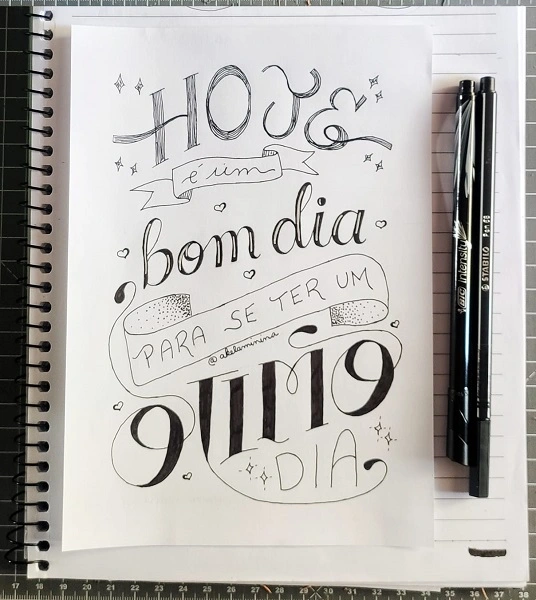 HOJE
é um
bom dia
PARA SE TER UM
OTIMO
DIA
BIC intensity
STABILO Pen 68
17 18 19 20 21 22 23 24 25 26 27 28 29 30 31 32 33 34 35 36 37 38